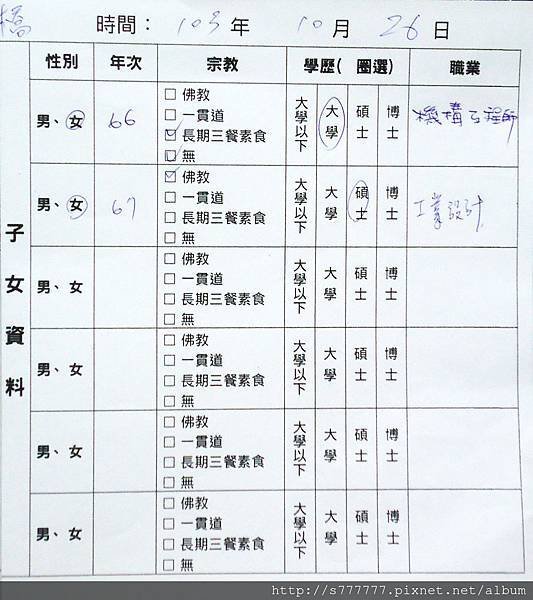 橋 時間： 103 年 10 月 26 日
性別 年次 宗教 學歷( 圈選) 職業
子女資料
男、女 66
□ 佛教
□ 一貫道
☑ 長期三餐素食
☑ 無
大學以下 大學 碩士 博士
機構工程師
男、女 67
☑ 佛教
□ 一貫道
□ 長期三餐素食
□ 無
大學以下 大學 碩士 博士
工業設計
男、女
□ 佛教
□ 一貫道
□ 長期三餐素食
□ 無
大學以下 大學 碩士 博士
男、女
□ 佛教
□ 一貫道
□ 長期三餐素食
□ 無
大學以下 大學 碩士 博士
男、女
□ 佛教
□ 一貫道
□ 長期三餐素食
□ 無
大學以下 大學 碩士 博士
男、女
□ 佛教
□ 一貫道
□ 長期三餐素食
□ 無
大學以下 大學 碩士 博士
http://s777777.pixnet.net/album